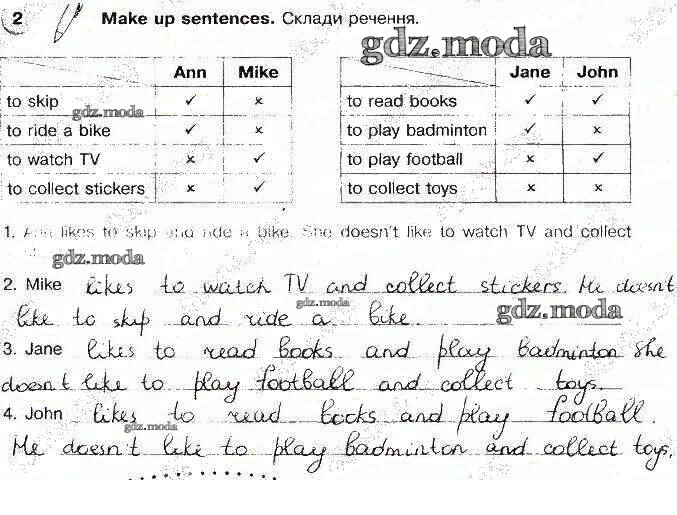 2 Make up sentences. Склади речення.
gdz.moda
Ann Mike
to skip ✓ x
gdz.moda
to ride a bike ✓ x
to watch TV x ✓
to collect stickers x ✓
Jane John
to read books ✓ ✓
to play badminton ✓ x
to play football x ✓
to collect toys x x
1. Ann likes to skip and ride a bike. She doesn't like to watch TV and collect
gdz.moda
2. Mike likes to watch TV and collect stickers. He doesn't
gdz.moda
like to skip and ride a bike.
gdz.moda
3. Jane likes to read books and play badminton She
doesn't like to play football and collect toys.
4. John likes to read books and play football.
gdz.moda
He doesn't like to play badminton and collect toys.